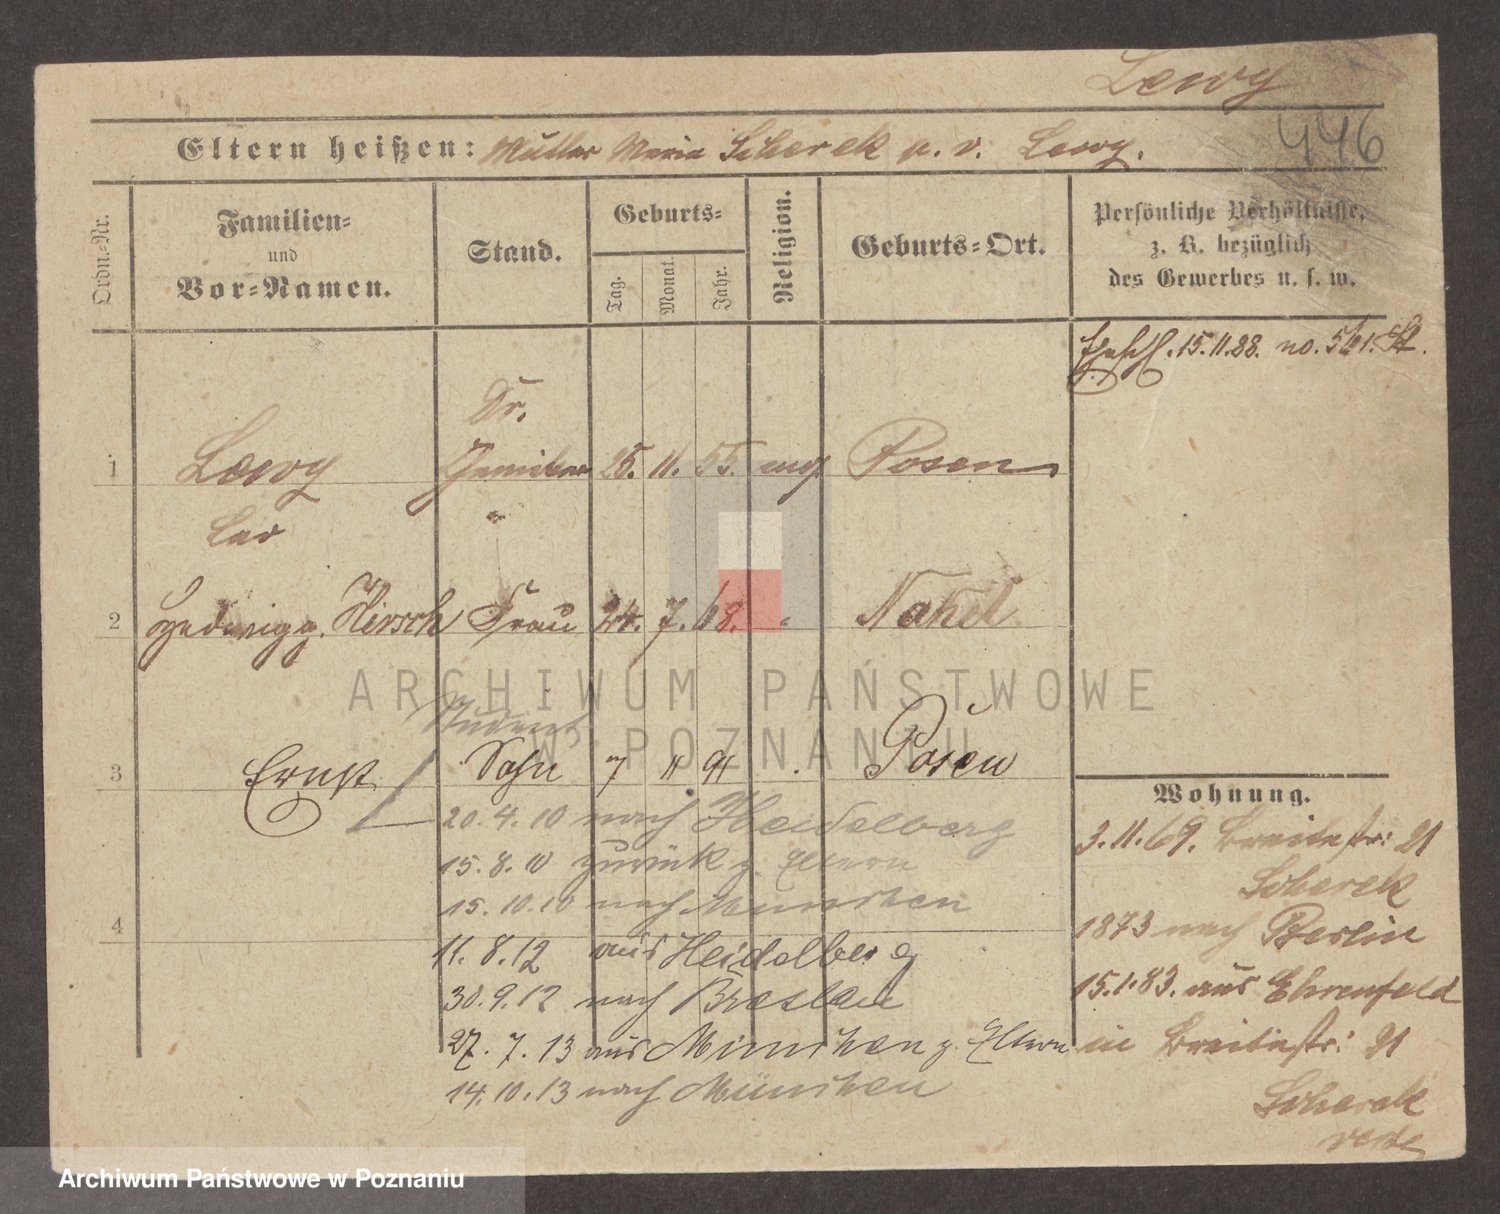 Lewy
446
Eltern heißen: Mutter Maria Scherek v. Lewy.
Ordn.-Nr.
Familien-
und
Vor-Namen.
Stand.
Geburts-
Tag.
Monat.
Jahr.
Religion.
Geburts-Ort.
Persönliche Verhältnisse,
z. B. bezüglich
des Gewerbes u. s. w.
15.11.88. no. 561.
Dr.
1 Lewy 25. 11. 55. Posen
2 Hedwig g. Hirsch Frau 24. 7. 68. Nakel
Student
3 Ernst Sohn 7 11 91 Posen
20.4.10 nach Heidelberg
15.8.10 zurück z. Eltern
15.10.10 nach München
4
11.8.12 aus Heidelberg
30.9.12 nach Breslau
27.7.13 aus München z. Eltern
14.10.13 nach München
Wohnung.
3.11.69. Breitestr: 21
Scherek
1873 nach Berlin
15.1.83. aus Ehrenfeld
in Breitestr: 21
Scherek
verte
ARCHIWUM PAŃSTWOWE
W POZNANIU
Archiwum Państwowe w Poznaniu